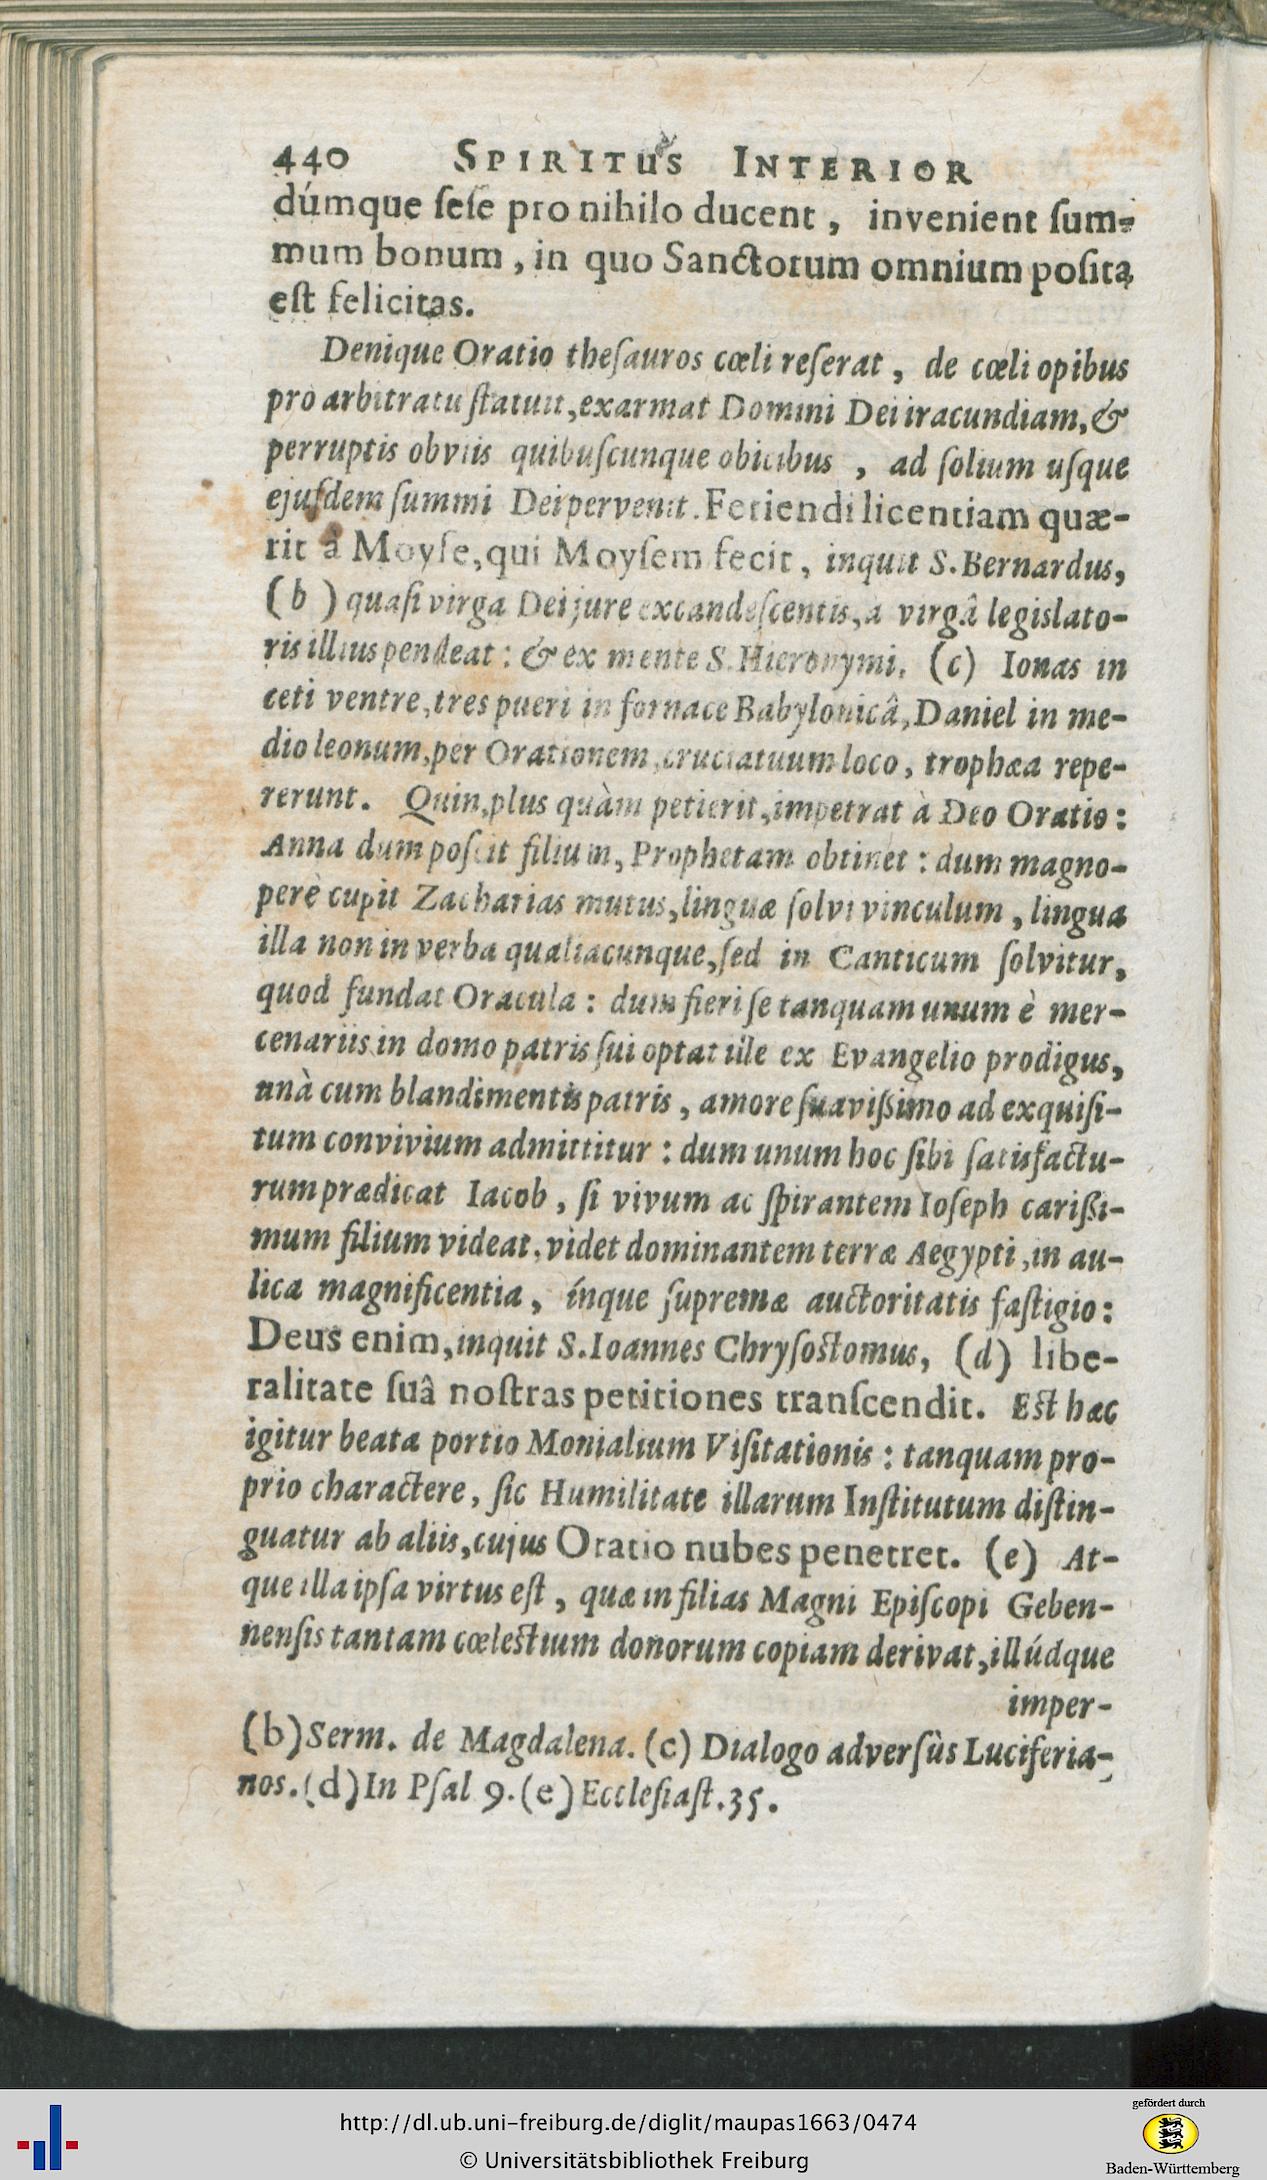 440 SPIRITUS INTERIOR
dúmque ſeſe pro nihilo ducent, invenient ſum-
mum bonum, in quo Sanctorum omnium poſita
eſt felicitas.
Denique Oratio theſauros cœli reſerat, de cœli opibus
pro arbitratu ſtatuit, exarmat Domini Dei iracundiam, &
perruptis obviis quibuſcunque obicibus, ad ſolium uſque
ejuſdem ſummi Dei pervenit. Feriendi licentiam quæ-
rit â Moyſe, qui Moyſem fecit, inquit S. Bernardus,
(b) quaſi virga Dei jure excandeſcentis, à virgâ legislato-
ris illius pendeat: & ex mente S. Hieronymi, (c) Ionas in
ceti ventre, tres pueri in fornace Babylonicâ, Daniel in me-
dio leonum, per Orationem, cruciatuum loco, trophæa repe-
rerunt. Quin, plus quàm petierit, impetrat à Deo Oratio:
Anna dum poſcit filium, Prophetam obtinet: dum magno-
perè cupit Zacharias mutus, linguæ ſolvi vinculum, lingua
illa non in verba qualiacunque, ſed in Canticum ſolvitur,
quod fundat Oracula: dum fieri ſe tanquam unum è mer-
cenariis in domo patris ſui optat ille ex Evangelio prodigus,
unà cum blandimentis patris, amore ſuaviſſimo ad exquiſi-
tum convivium admittitur: dum unum hoc ſibi ſatisfactu-
rum prædicat Iacob, ſi vivum ac ſpirantem Ioſeph cariſſi-
mum filium videat, videt dominantem terræ Aegypti, in au-
lica magnificentia, ínque ſupremæ auctoritatis faſtigio:
Deus enim, inquit S. Ioannes Chryſoſtomus, (d) libe-
ralitate ſuâ noſtras petitiones tranſcendit. Eſt hæc
igitur beata portio Monialium Viſitationis: tanquam pro-
prio charactere, ſic Humilitate illarum Inſtitutum diſtin-
guatur ab aliis, cujus Oratio nubes penetret. (e) At-
que illa ipſa virtus eſt, quæ in filias Magni Epiſcopi Geben-
nenſis tantam cœleſtium donorum copiam derivat, illúdque
imper-
(b) Serm. de Magdalena. (c) Dialogo adverſùs Luciferia-
nos. (d) In Pſal 9. (e) Eccleſiaſt. 35.
http://dl.ub.uni-freiburg.de/diglit/maupas1663/0474
© Universitätsbibliothek Freiburg
gefördert durch
Baden-Württemberg